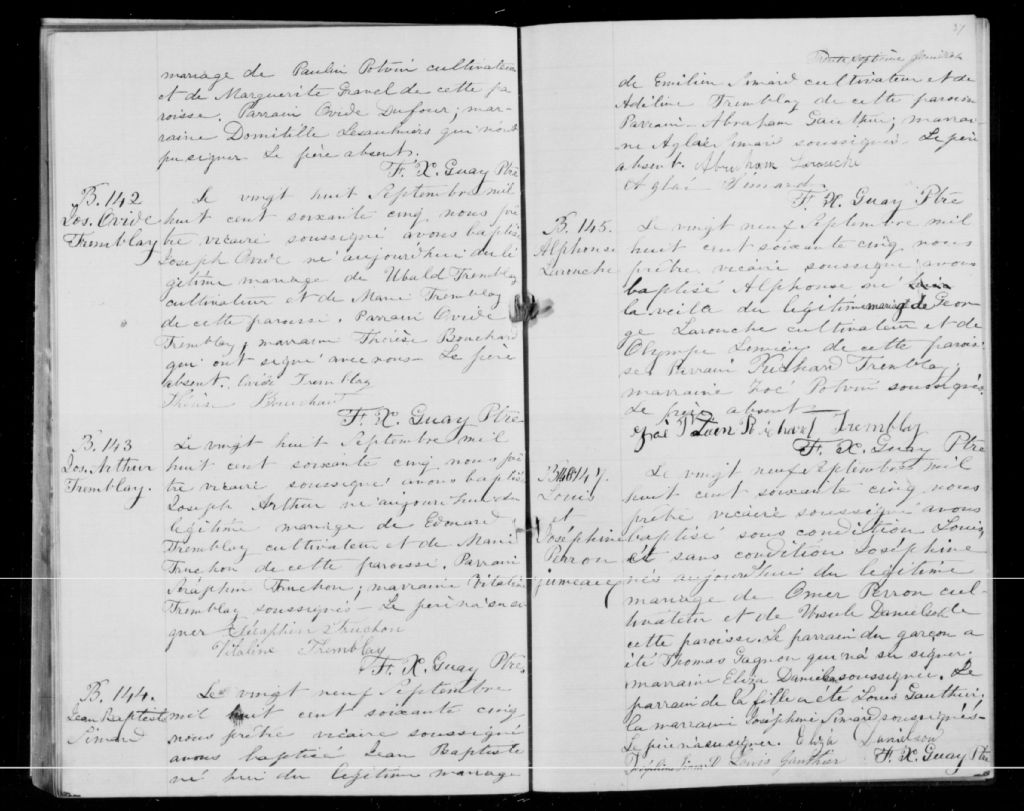 mariage de Paulin Potvin cultivateur
et de Marguerite Gravel de cette pa
roisse. Parrain Ovide Dufour; mar-
raine Domitille Lesaulniers qui n'ont
pu signer Le père absent.
F. X. Guay Ptre
B. 142
Jos. Ovide
Tremblay
Le vingt huit Septembre mil
huit cent soixante cinq, nous prê
tre vicaire soussigné avons baptisé
Joseph Ovide né aujourd'hui du lé
gitime mariage de Ubald Tremblay
cultivateur et de Marie Tremblay
de cette paroisse. Parrain Ovide
Tremblay, marraine Thérèse Bouchard
qui ont signé avec nous - Le père
absent. Ovide Tremblay
Thérèse Bouchard
F. X. Guay Ptre
B. 143
Jos. Arthur
Tremblay.
Le vingt huit Septembre mil
huit cent soixante cinq nous prê
tre vicaire soussigné avons baptisé
Joseph Arthur né aujourd'hui du
légitime mariage de Edmard
Tremblay cultivateur et de Marie
Truchon de cette paroisse. Parrain
Séraphin Truchon; marraine Vitaline
Tremblay soussignés - Le père n'a su si
gner Séraphin Truchon
Vitaline Tremblay
F. X. Guay Ptre
B. 144.
Jean Baptiste
Simard
Le vingt neuf Septembre
mil huit cent soixante cinq
nous prêtre vicaire soussigné
avons baptisé Jean Baptiste
né hier du légitime mariage
37
Trente septième feuillet
de Emilien Simard cultivateur et de
Adéline Tremblay de cette paroisse
Parrain Abraham Gauthier; marrai-
ne Aglaé Simard soussignés. Le père
absent. Abraham Larouche
Aglaé Simard
F. X. Guay Ptre
B. 145.
Alphonse
Larouche
Le vingt neuf Septembre mil
huit cent soixante cinq nous
prêtre vicaire soussigné avons
baptisé Alphonse né
la veille du légitime mariage de Geor
ge Larouche cultivateur et de
Olympe Lemieux de cette parois
se. Parrain Richard Tremblay,
marraine Zoé Potvin soussignés
Le père absent
Zoé Potvin Richard Tremblay
F. X. Guay Ptre
B. 146 147.
Louis
et
Joséphine
Perron
jumeaux
Le vingt neuf Septembre mil
huit cent soixante cinq nous
prêtre vicaire soussigné avons
baptisé sous condition Louis,
et sans condition Joséphine
nés aujourd'hui du légitime
mariage de Omer Perron cul-
tivateur et de Ursule Danielson de
cette paroisse. Le parrain du garçon a
été Thomas Gagnon qui n'a su signer.
marraine Eliza Danielson soussignée. Le
parrain de la fille a été Louis Gauthier,
la marraine Joséphine Simard soussignés -
Le père n'a su signer. Eliza Danielson
Joséphine Simard Louis Gauthier F. X. Guay Ptre